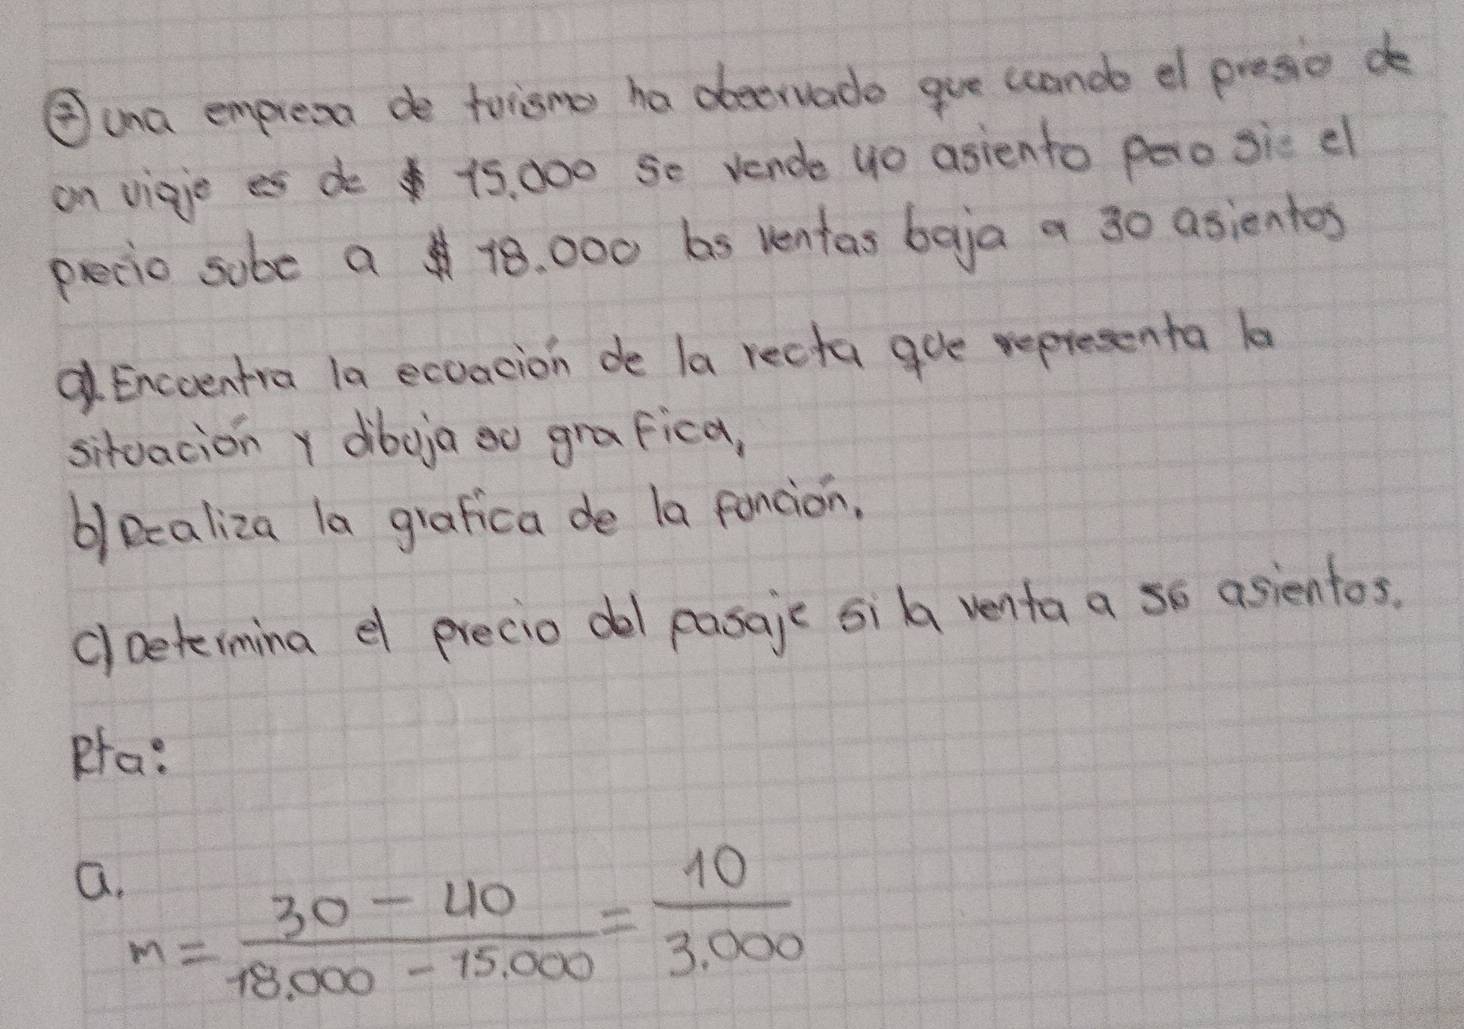 ② una empresa de turismo ha observado que cuando el presio de
un viaje es de $ 15.000 se vende 40 asiento pero sie el
precio sube a $ 18.000 las ventas baja a 30 asientos
a). Encuentra la ecuación de la recta que representa la
situación y dibuja su grafica,
b) Realiza la grafica de la función.
c) Determina el precio del pasaje si la venta a 56 asientos.
Rta:
a.
m = 30 - 40 / 18.000 - 15.000 = 10 / 3.000